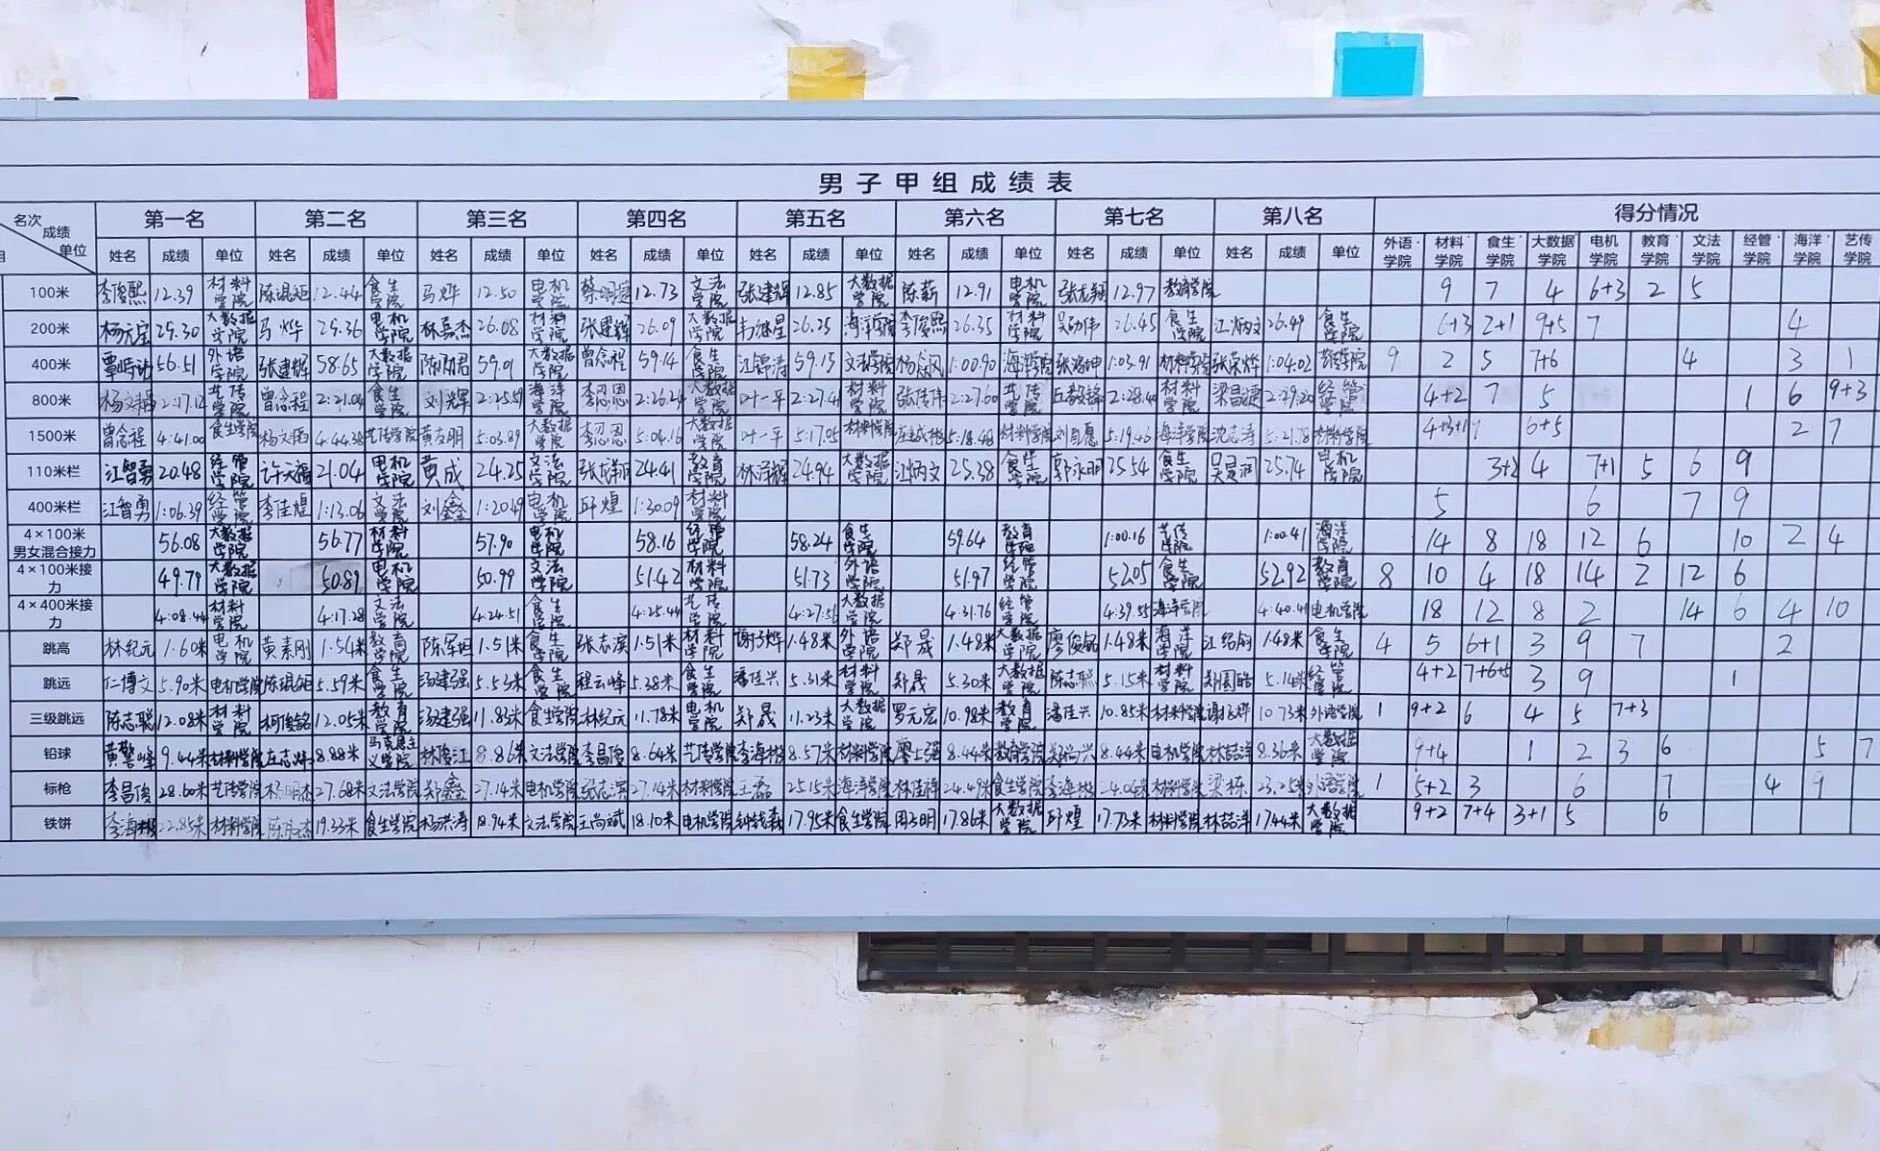 男子甲组成绩表
名次 成绩 单位 第一名 第二名 第三名 第四名 第五名 第六名 第七名 第八名 得分情况
姓名 成绩 单位 姓名 成绩 单位 姓名 成绩 单位 姓名 成绩 单位 姓名 成绩 单位 姓名 成绩 单位 姓名 成绩 单位 姓名 成绩 单位 外语学院 材料学院 食生学院 大数据学院 电机学院 教育学院 文法学院 经管学院 海洋学院 艺传学院
100米 李俊熙 12.39 材料学院 陈琨钜 12.44 食生学院 马烨 12.50 电机学院 12.73 文法学院 张建辉 12.85 大数据学院 陈薪 12.91 电机学院 张龙翔 12.97 教育学院 9 7 4 6+3 2 5
200米 杨元宝 25.30 大数据学院 马烨 25.36 电机学院 林嘉杰 26.08 材料学院 张建辉 26.09 大数据学院 韦继星 26.25 海洋学院 李俊熙 26.35 材料学院 吴劲伟 26.45 食生学院 江炳文 26.49 食生学院 6+3 2+1 9+5 7 4
400米 56.51 外语学院 张建辉 58.65 大数据学院 59.01 大数据学院 曾念程 59.14 食生学院 江锦涛 59.15 文法学院 1:00.90 海洋学院 1:03.91 材料学院 张荣烨 1:04.02 9 2 5 7+6 4 3 1
800米 2:17.12 艺传学院 曾念程 2:21.04 食生学院 刘辉 2:25.59 海洋学院 李忍恩 2:26.24 大数据学院 叶一平 2:27.41 材料学院 2:27.60 艺传学院 丘毅锋 2:28.40 材料学院 梁昌捷 2:29.20 经管学院 4+2 7 5 1 6 9+3
1500米 曾念程 4:41.00 食生学院 4:44.38 艺传学院 黄友明 5:03.89 大数据学院 李忍恩 5:04.16 大数据学院 叶一平 5:17.05 材料学院 5:18.48 材料学院 5:19.46 海洋学院 沈志涛 5:21.78 材料学院 4+3+1 6+5 2 7
110米栏 江智勇 20.48 经管学院 许天福 21.04 电机学院 黄成 24.25 文法学院 张龙翔 24.41 教育学院 林泽辉 24.94 大数据学院 江炳文 25.38 食生学院 郭永明 25.54 食生学院 25.74 电机学院 3+2 4 7+1 5 6 9
400米栏 江智勇 1:06.39 经管学院 李佳煌 1:13.06 文法学院 刘鑫 1:20.49 电机学院 邱煌 1:30.09 材料学院 5 6 7 9
4×100米男女混合接力 56.08 大数据学院 56.77 材料学院 57.90 电机学院 58.16 经管学院 58.24 食生学院 59.64 教育学院 1:00.16 艺传学院 1:00.41 海洋学院 14 8 18 12 6 10 2 4
4×100米接力 49.79 大数据学院 50.89 电机学院 50.99 文法学院 51.42 材料学院 51.73 外语学院 51.97 经管学院 52.05 食生学院 52.92 教育学院 8 10 4 18 14 2 12 6
4×400米接力 4:08.44 材料学院 4:17.28 文法学院 4:24.51 食生学院 4:25.44 艺传学院 4:27.56 大数据学院 4:31.76 经管学院 4:39.55 海洋学院 4:40.41 电机学院 18 12 8 2 14 6 4 10
跳高 林纪元 1.60米 电机学院 黄素刚 1.54米 教育学院 陈军坦 1.51米 食生学院 张志滨 1.51米 材料学院 谢孙烨 1.48米 外语学院 郑晟 1.48米 大数据学院 廖俊铭 1.48米 海洋学院 1.48米 食生学院 4 5 6+1 3 9 7 2
跳远 仁博文 5.90米 电机学院 陈琨钜 5.59米 食生学院 汤建强 5.53米 食生学院 程云峰 5.38米 食生学院 潘佳兴 5.31米 材料学院 郑晟 5.30米 大数据学院 陈志聪 5.15米 材料学院 郑圆皓 5.14米 经管学院 4+2 7+6+5 3 9 1
三级跳远 陈志聪 12.08米 材料学院 柯俊铭 12.05米 教育学院 汤建强 11.85米 食生学院 林纪元 11.78米 电机学院 郑晟 11.23米 大数据学院 罗元宏 10.98米 教育学院 潘佳兴 10.85米 材料学院 谢孙烨 10.73米 外语学院 1 9+2 6 4 5 7+3
铅球 黄警峰 9.44米 材料学院 8.88米 马克思主义学院 林俊江 8.86米 文法学院 李昌俊 8.64米 艺传学院 李海彬 8.57米 材料学院 廖上强 8.44米 教育学院 8.44米 电机学院 林喆洋 8.36米 大数据学院 9+4 1 2 3 6 5 7
标枪 李昌俊 28.60米 艺传学院 27.68米 文法学院 郑鑫 27.14米 电机学院 张志滨 27.14米 材料学院 王磊 25.15米 海洋学院 林佳祥 24.49米 食生学院 李海彬 24.06米 材料学院 梁栋 23.25米 外语学院 1 5+2 3 6 7 4 9
铁饼 李海彬 22.85米 材料学院 19.33米 食生学院 杨洪涛 18.94米 文法学院 王尚斌 18.10米 电机学院 17.95米 食生学院 17.86米 大数据学院 邱煌 17.73米 材料学院 林喆洋 17.44米 大数据学院 9+2 7+4 3+1 5 6